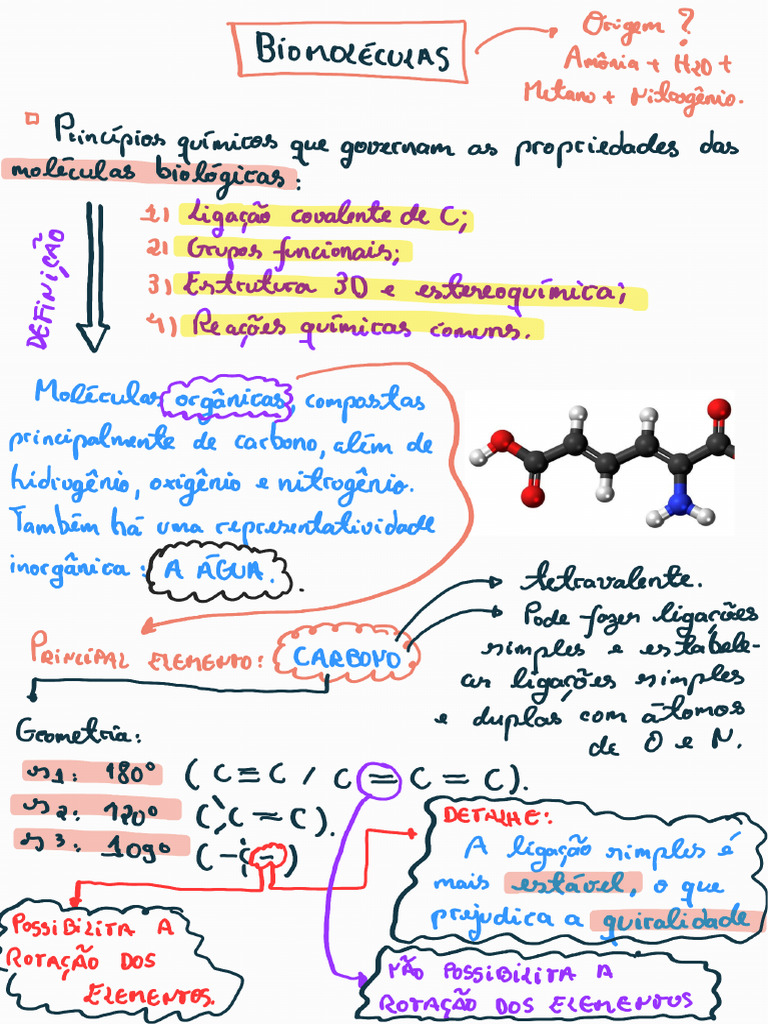 BIOMOLÉCULAS
Origem?
Amônia + H2O +
Metano + Nitrogênio.
Princípios químicos que governam as propriedades das
moléculas biológicas:
DEFINIÇÃO
1) Ligação covalente de C;
2) Grupos funcionais;
3) Estrutura 3D e estereoquímica;
4) Reações químicas comuns.
Moléculas orgânicas, compostas
principalmente de carbono, além de
hidrogênio, oxigênio e nitrogênio.
Também há uma representatividade
inorgânica: A ÁGUA.
PRINCIPAL ELEMENTO: CARBONO
tetravalente.
Pode fazer ligações
simples e estabele-
as ligações simples
e duplas com átomos
de O e N.
Geometria:
s1: 180° (C≡C / C=C=C).
s2: 120° (C=C).
s3: 109° (-C-)
DETALHE:
A ligação simples é
mais estável, o que
prejudica a quiralidade
POSSIBILITA A
ROTAÇÃO DOS
ELEMENTOS.
NÃO POSSIBILITA A
ROTAÇÃO DOS ELEMENTOS